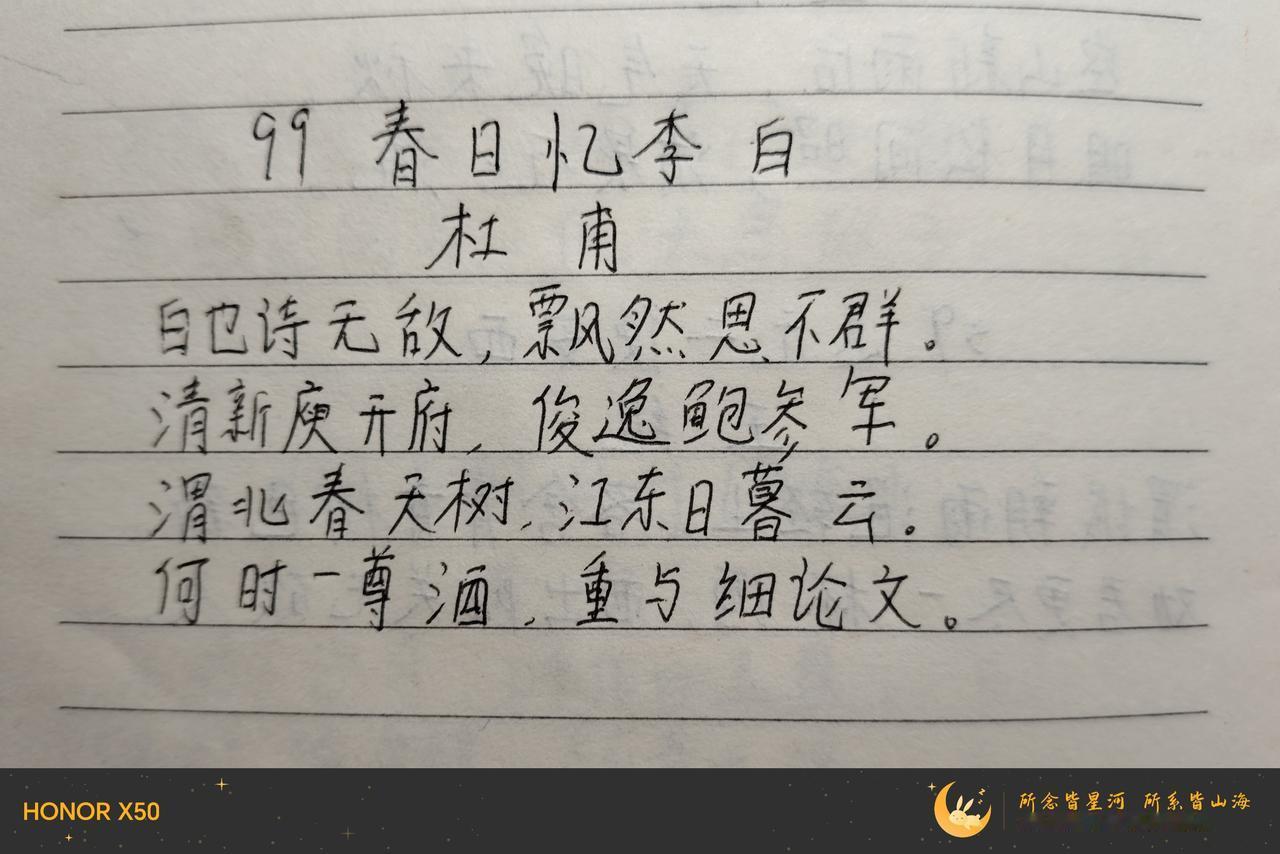 99 春日忆李白
杜甫
白也诗无敌，飘然思不群。
清新庾开府，俊逸鲍参军。
渭北春天树，江东日暮云。
何时一尊酒，重与细论文。
HONOR X50
所念皆星河 所系皆山海